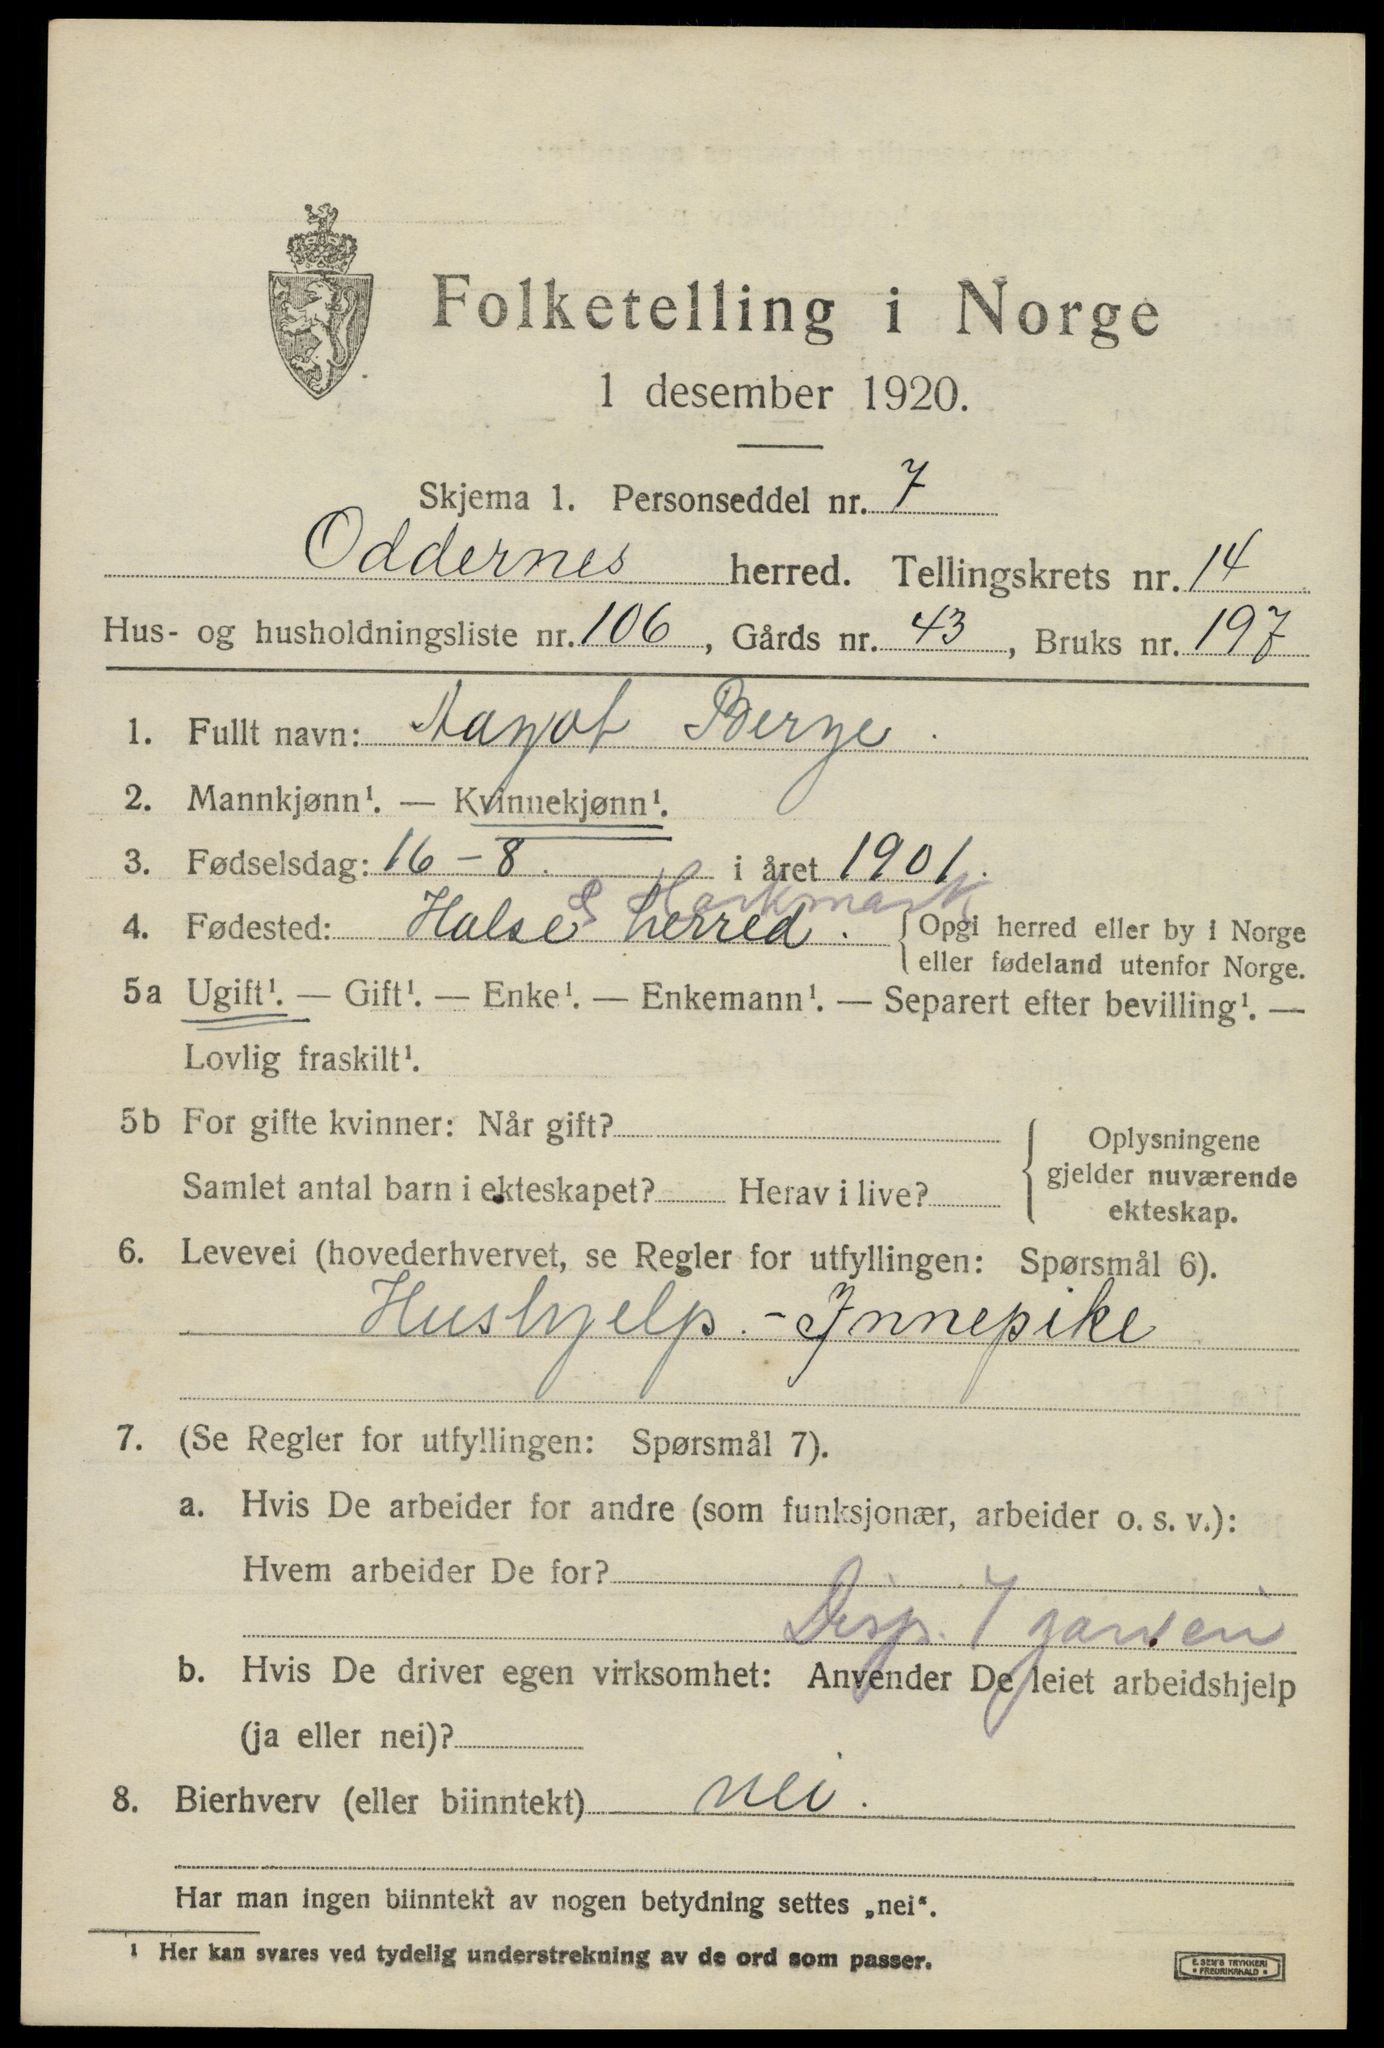 Folketelling i Norge
1 desember 1920.
Skjema 1. Personseddel nr. 7
Oddernes herred. Tellingskrets nr. 14
Hus- og husholdningsliste nr. 106, Gårds nr. 43, Bruks nr. 197
1. Fullt navn: Aagot Berge.
2. Mannkjønn¹. — Kvinnekjønn¹.
3. Fødselsdag: 16 - 8. i året 1901.
& Harkmark
4. Fødested: Halse herred. { Opgi herred eller by i Norge
eller fødeland utenfor Norge.
5a Ugift¹. — Gift¹. — Enke¹. — Enkemann¹. — Separert efter bevilling¹. —
Lovlig fraskilt¹.
5b For gifte kvinner: Når gift?
Samlet antal barn i ekteskapet? Herav i live?
{ Oplysningene
gjelder nuværende
ekteskap.
6. Levevei (hovederhvervet, se Regler for utfyllingen: Spørsmål 6).
Hushjelp. - Innepike
7. (Se Regler for utfyllingen: Spørsmål 7).
a. Hvis De arbeider for andre (som funksjonær, arbeider o. s. v.):
Hvem arbeider De for?
Disp.
b. Hvis De driver egen virksomhet: Anvender De leiet arbeidshjelp
(ja eller nei)?
8. Bierhverv (eller biinntekt) nei.
Har man ingen biinntekt av nogen betydning settes „nei“.
¹ Her kan svares ved tydelig understrekning av de ord som passer.
E. SEM'S TRYKKERI
• FREDRIKSHALD •